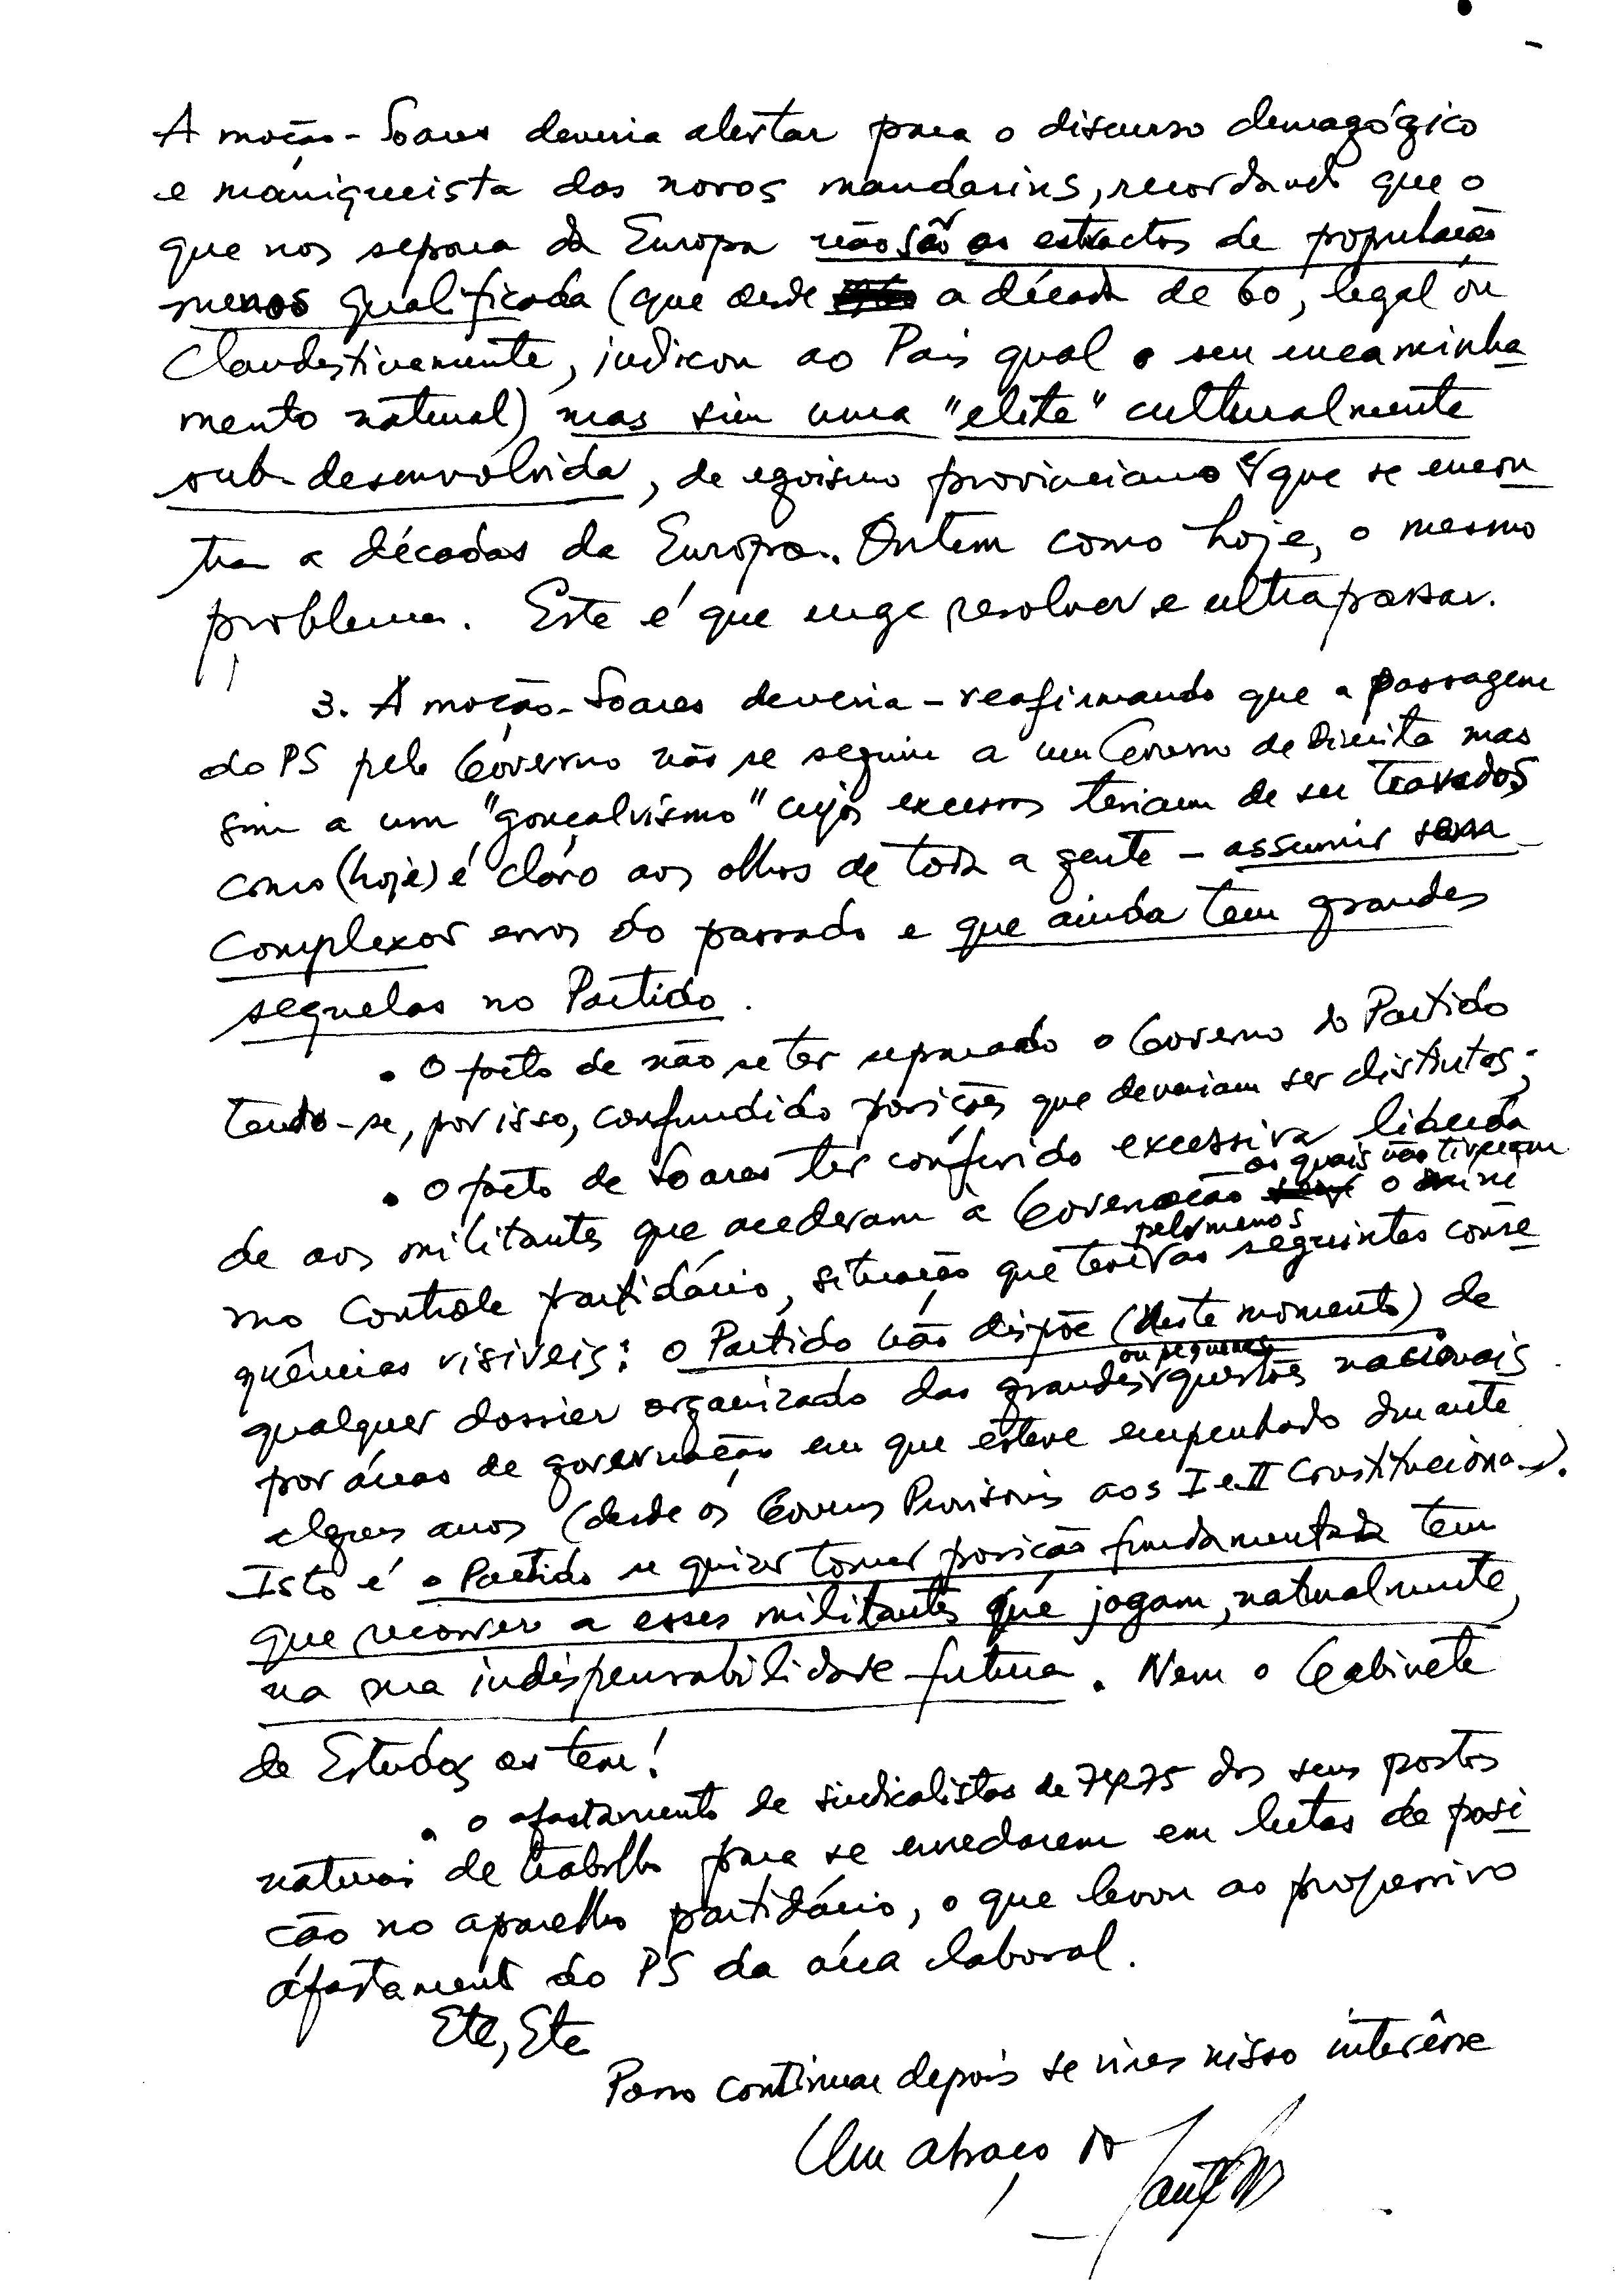 A moção-Soares deveria alertar para o discurso demagógico
e maniqueista dos novos mandarins, recordando que o
que nos separa da Europa não são os estractos de população
menos qualificada (que desde a década de 60, legal ou
clandestinamente, indicou ao País qual o seu encaminha
mento natural) mas sim uma "elite" culturalmente
sub-desenvolvida, de egoismo provinciano e que se encon
tra a décadas da Europa. Ontem como hoje, o mesmo
problema. Este é que urge resolver e ultrapassar.
3. A moção-Soares deveria - reafirmando que a passagem
do PS pelo Governo não se seguiu a um Governo de Direita mas
sim a um "gonçalvismo" cujos excessos teriam de ser travados
como (hoje) é claro aos olhos de toda a gente - assumir sem
complexos erros do passado e que ainda tem grandes
sequelas no Partido.
• O facto de não se ter separado o Governo do Partido
tendo-se, por isso, confundido posições que deveriam ser distintas;
• O facto de Soares ter conferido excessiva liberda
os quais não tiveram
de aos militantes que acederam à Governação o míni
pelo menos
mo controle partidário, situação que teve as seguintes conse
quências visiveis: o Partido não dispõe (neste momento) de
ou pequenas
qualquer dossier organizado das grandes questões nacionais
por áreas de governação em que esteve empenhado durante
alguns anos (desde os Governos Provisórios aos I e II Constitucionais).
Isto é o Partido se quizer tomar posição fundamentada tem
que recorrer a esses militantes que jogam, naturalmente,
na sua indispensabilidade futura. Nem o Gabinete
de Estudos os tem!
• o afastamento de sindicalistas de 74/75 dos seus postos
naturais de trabalho para se enredarem em lutas de posi
ção no aparelho partidário, o que levou ao progressivo
afastamento do PS da área laboral.
Etc, Etc
Posso continuar depois se vires nisso interêsse
Um abraço do